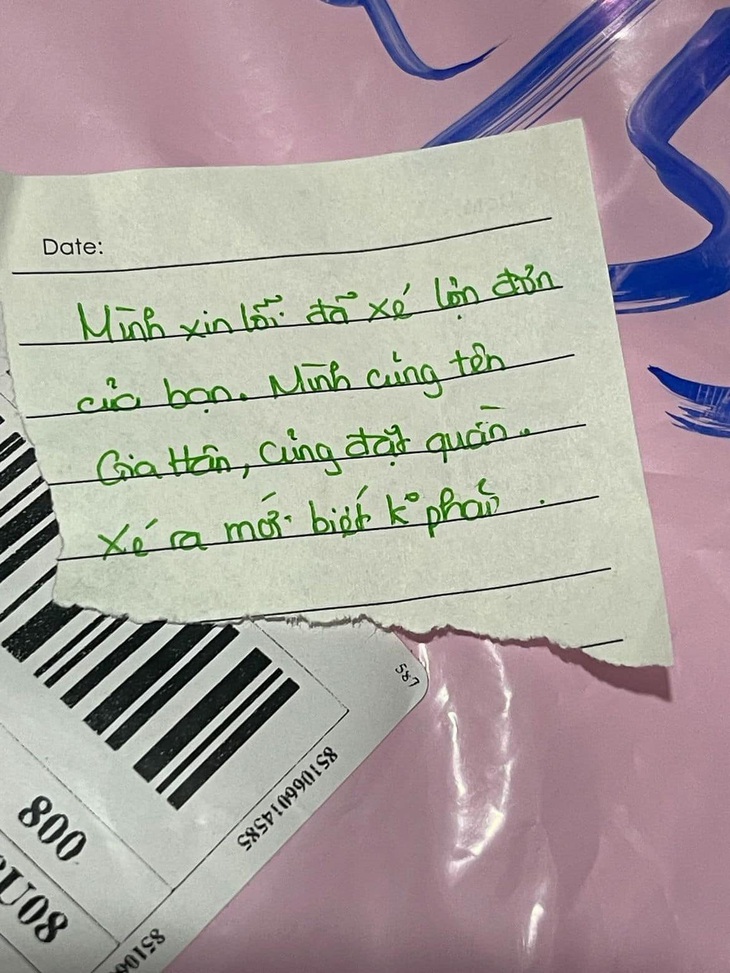 Date:
Mình xin lỗi đã xé lộn đơn
của bạn. Mình cũng tên
Gia Hân, cũng đặt quần.
Xé ra mới biết k° phải.
587
851066014585
800
8510